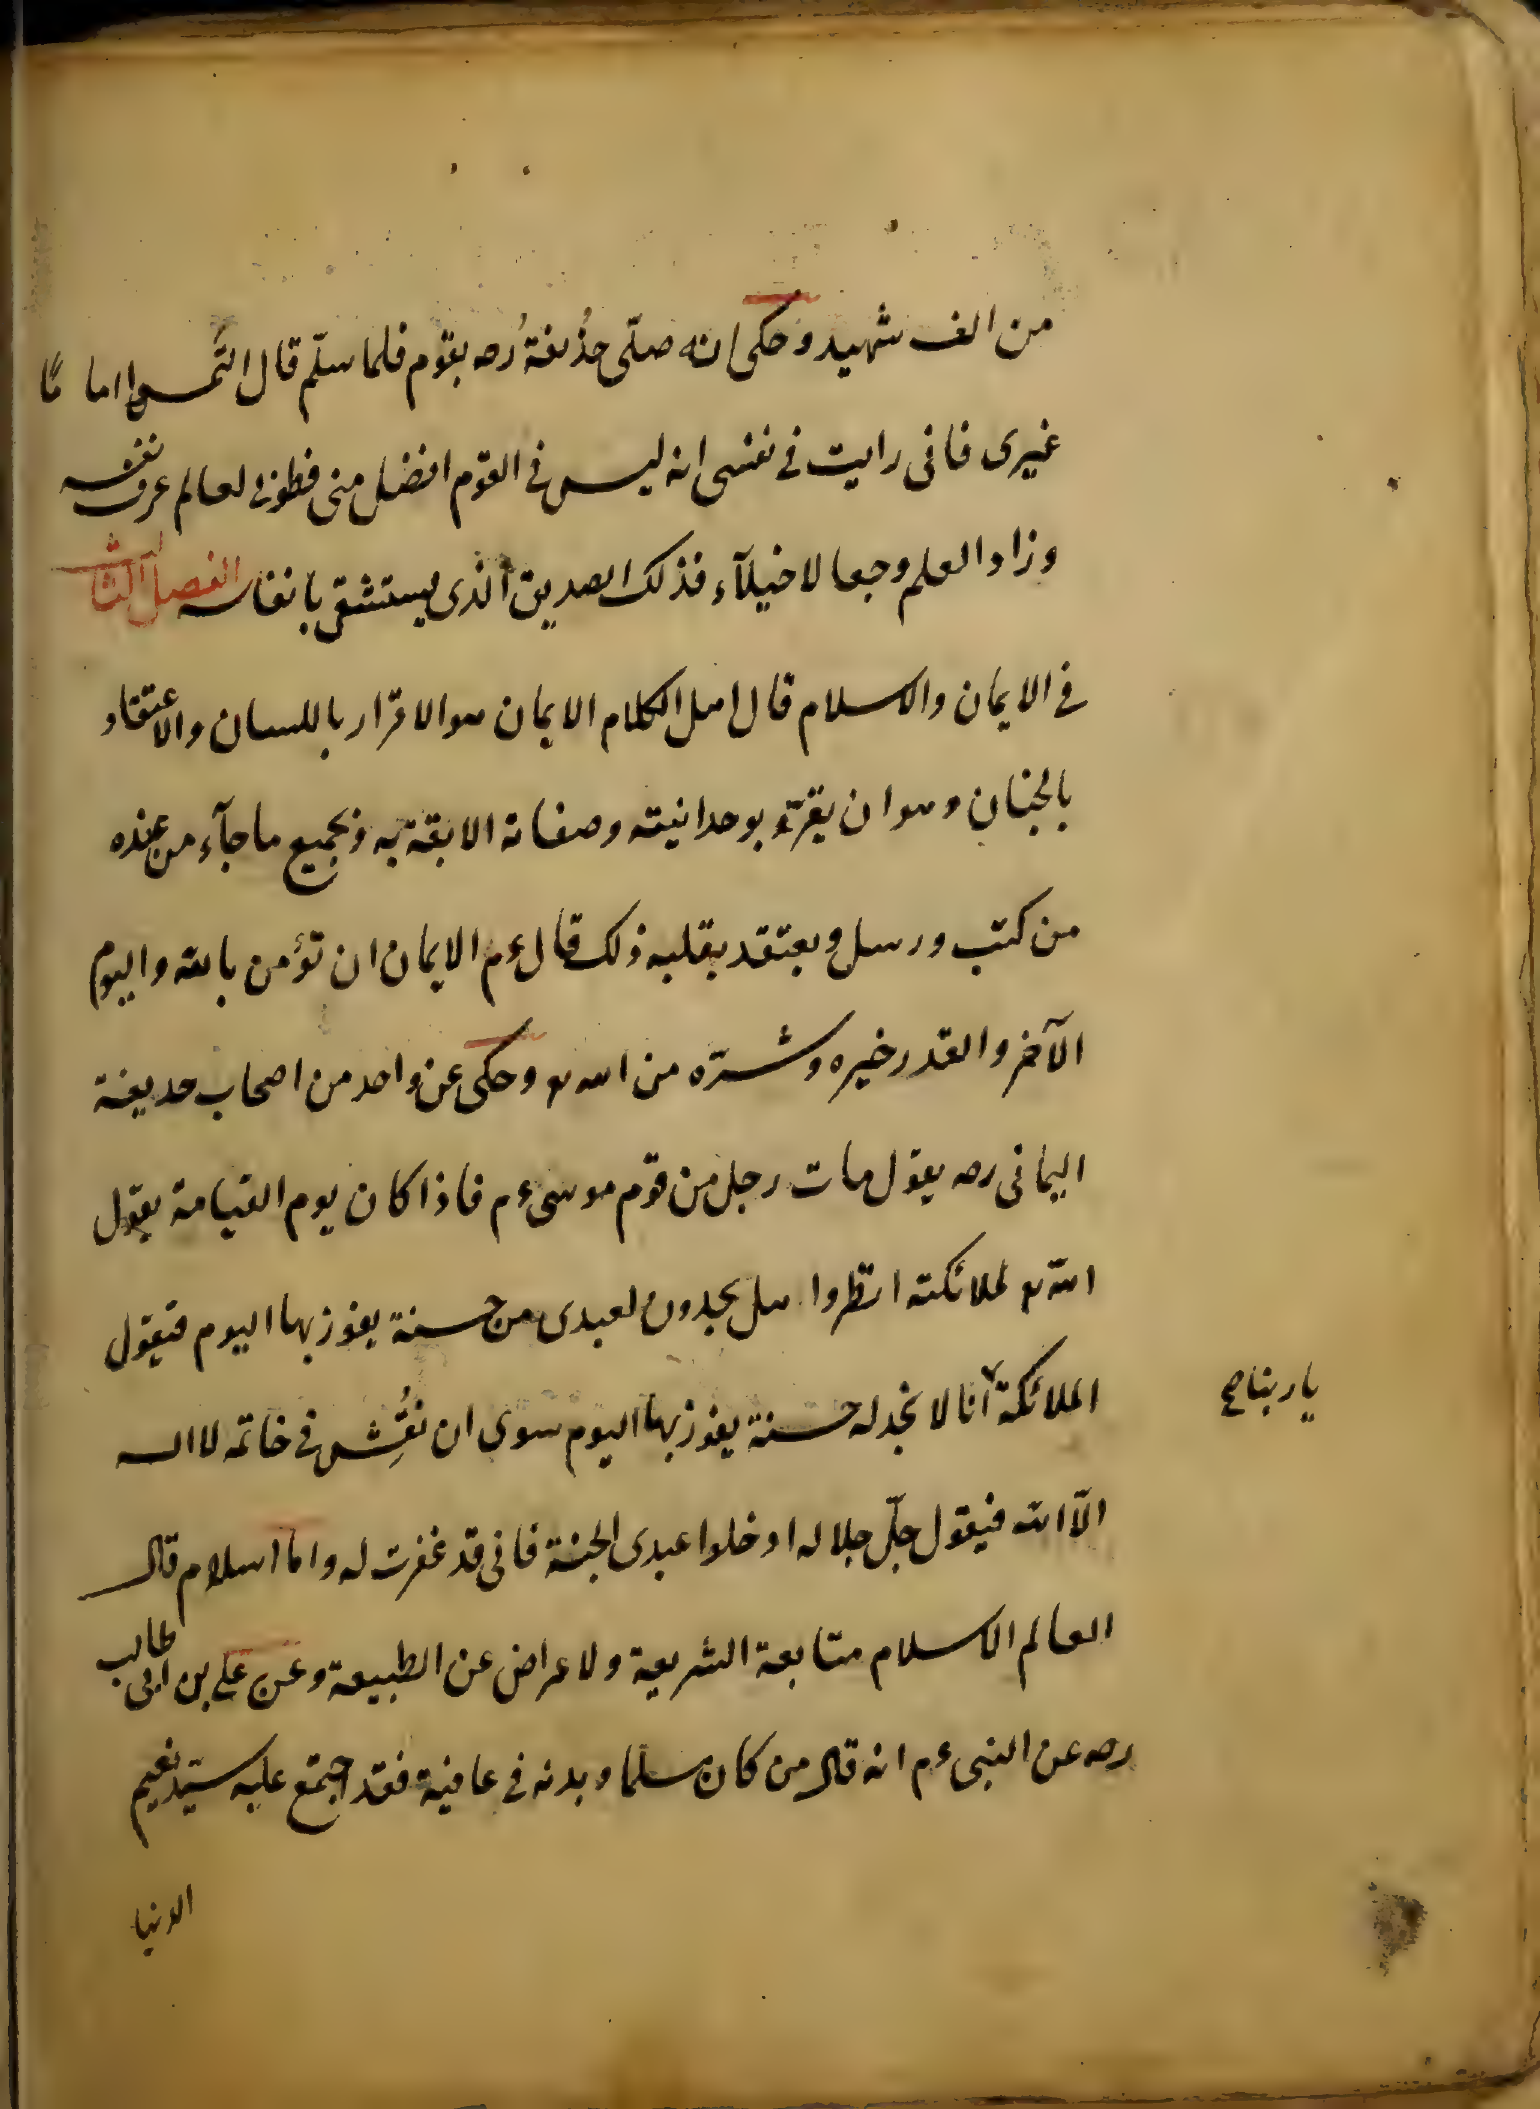 من الف شهيد وحكى انه صلّى حذيفة رُصه بقوم فلما سلّم قال التمسوا اماما
غيرى فانى رايت فى نفسى انه ليس فى القوم افضل منى فطوبى لعالم عرف نفسه
وزاد العلم وجعا لا خيلآء فذلك الصديق الذى يستشقى بانفاسه الفصل الثالث
فى الايمان والاسلام قال اهل الكلام الايمان هو الاقرار باللسان والاعتقاد
بالجنان وهو ان يقرّ بوحدانيته وصفاته الابقة به وبجميع ما جآء من عنده
من كتب ورسل ويعتقد بقلبه ذلك قال ءم الايمان ان تؤمن بالله واليوم
الآخر والقدر خيره وشرّه من الله تع وحكى عن واحد من اصحاب حديفة
اليمانى رصه يقول مات رجل من قوم موسى ءم فاذا كان يوم القيامة يقول
الله تع لملائكته انظروا هل تجدون لعبدى من حسنة يفوز بها اليوم فيقول
الملائكة انا لا نجد له حسنة يفوز بها اليوم سوى ان نُقِّش فى خاتمه لا اله
يا ربنا صح
الّا الله فيقول جلّ جلاله ادخلوا عبدى الجنة فانى قد غفرت له واما اسلام قال
العالم الاسلام متابعة الشريعة ولاعراض عن الطبيعة وعن على بن ابى طالب
رصه عن النبى ءم انه قال من كان مسلما وبدنه فى عافية فقد اجتمع عليه سيّد نعيم
الدنيا